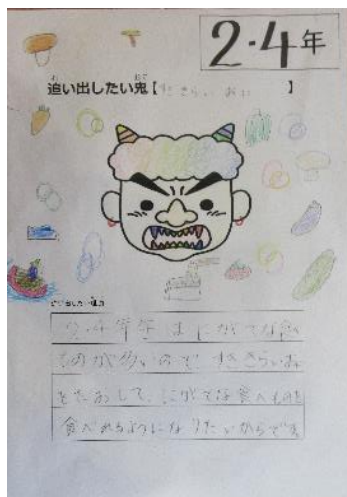 2・4年
追い出したい鬼【すききらいおに】
2.4年生はにがてな食べ
ものが多いので すききらいおに
をたおして、にがてな食べものを
食べれるようになりたいからです